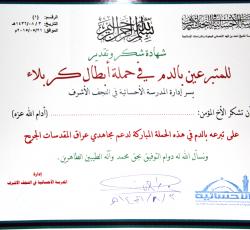 بسم الله الرحمن الرحيم
شهادة شكر وتقدير
للمتبرعين بالدم في حملة أبطال كربلاء
يسر إدارة المدرسة الأحسائية في النجف الأشرف
أن تشكر الأخ المؤمن: (أدام الله عزه)
على تبرعه بالدم في هذه الحملة المباركة لدعم مجاهدي عراق المقدسات الجريح
ونسأل الله له دوام التوفيق بحق محمد وآله الطيبين الطاهرين.
إدارة
المدرسة الأحسائية في النجف الأشرف
الأحسائية